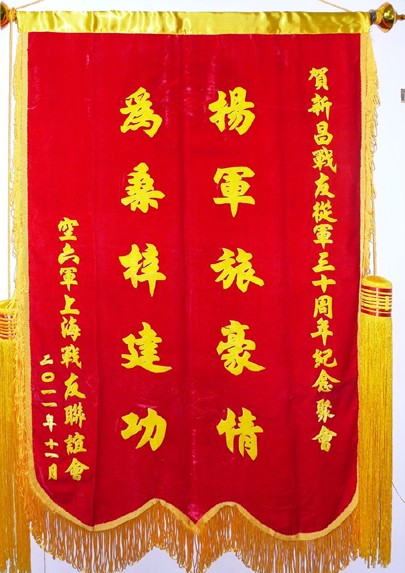 賀新昌戰友從軍三十周年紀念聚會
揚軍旅豪情
為桑梓建功
空六軍上海戰友聯誼會
二〇一一年十一月